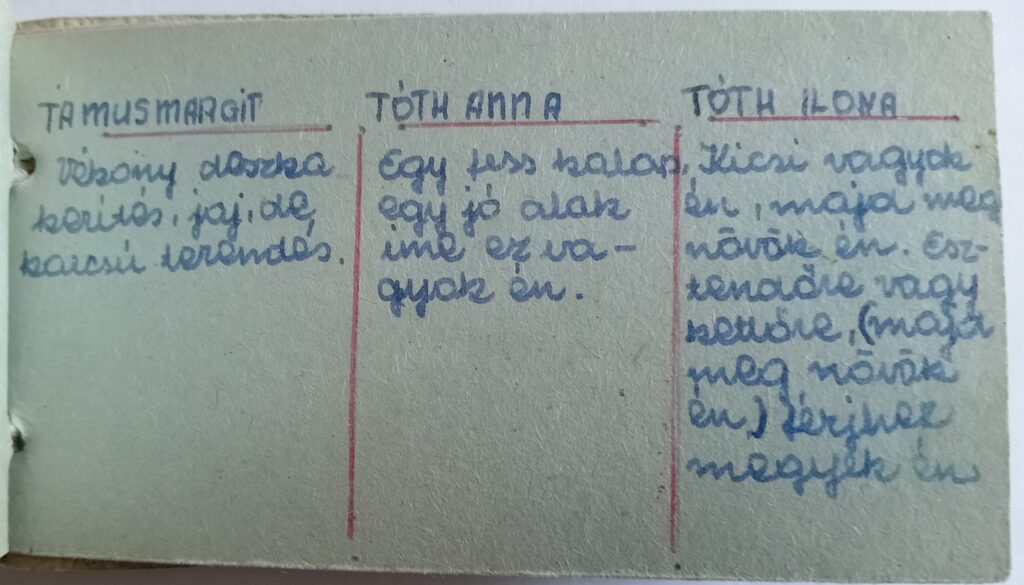 TAMUS MARGIT
Vékony deszka
kerités, jaj, de,
karcsú teremtés.
TÓTH ANNA
Egy fess kalap,
egy jó alak
ime ez va-
gyok én.
TÓTH ILONA
Kicsi vagyok
én, majd meg
növök én. Esz-
tendőre vagy
kettőre, (majd
meg növök
én) férjhez
megyek én